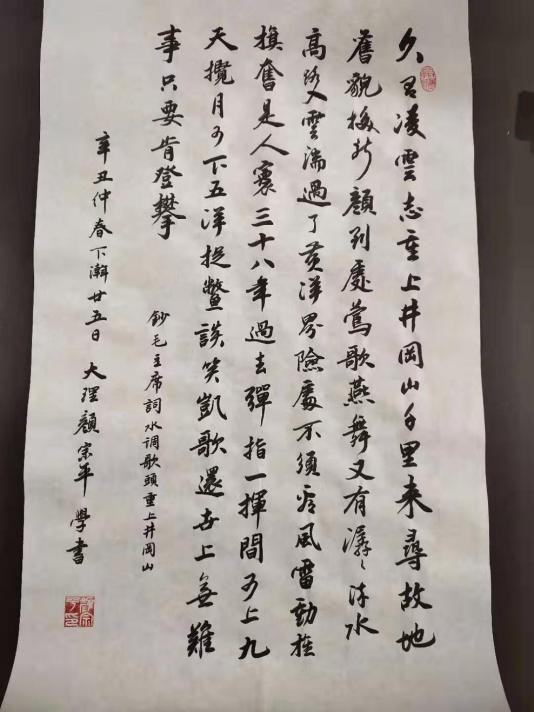 久有凌雲志重上井岡山千里来尋故地
舊貌換新顏到處鶯歌燕舞又有潺〻流水
高路入雲端過了黄洋界險處不須看風雷動旌
旗奮是人寰三十八年過去彈指一揮間可上九
天攬月可下五洋捉鱉談笑凱歌還世上無難
事只要肯登攀
鈔毛主席詞水调歌頭重上井岡山
辛丑仲春下澣廿五日 大理顏宗平學書